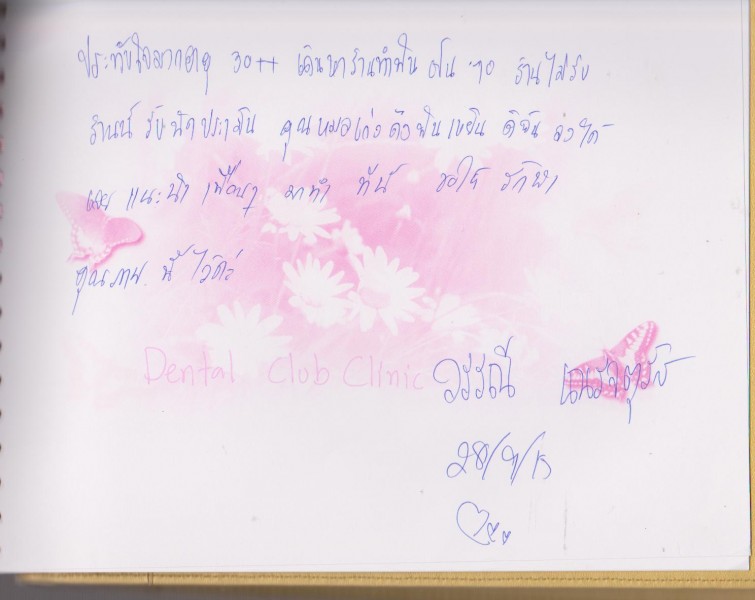 ประทับใจมากอายุ 30++ เดินหาร้านทำฟัน เป็น 10 ร้านไม่รับ
ร้านนี้ รับนัดประเมิน คุณหมอเก่ง ดัดฟันเหยิน ดิฉัน ลงได้
เลย แนะนำ เพื่อนๆ มาทำ ที่นี่ ขอให้ รักษา
คุณภาพ. นี้ ไว้ค่ะ
Dental Club Clinic
วรรณี
28/9/15